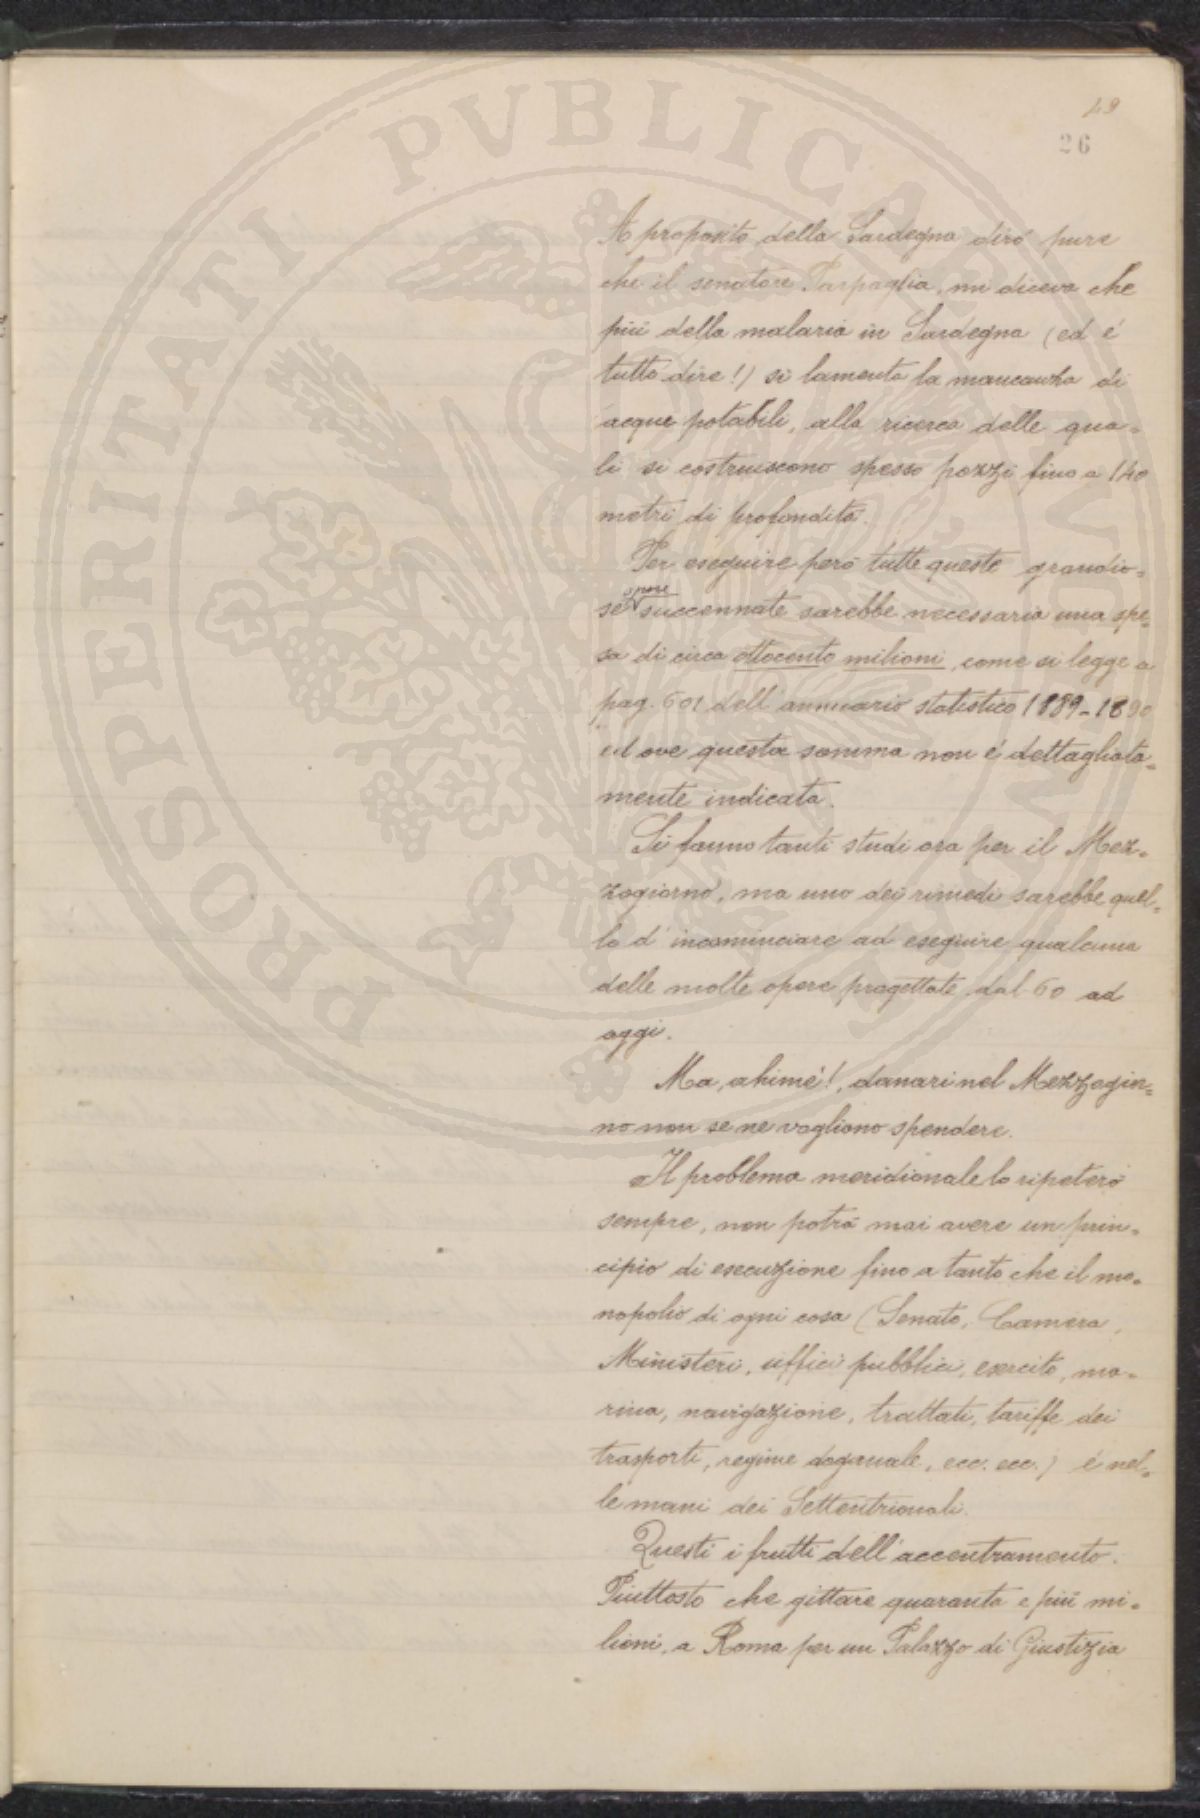 49
26
A proposito della Sardegna dirò pure
che il senatore Parpaglia, mi diceva che
più della malaria in Sardegna (ed è
tutto dire!) si lamenta la mancanza di
acque potabili, alla ricerca delle qua=
li si costruiscono spesso pozzi fino a 140
metri di profondità.
Per eseguire però tutte queste grandio=
se opere succennate sarebbe necessaria una spe=
sa di circa ottocento milioni, come si legge a
pag. 601 dell'annuario statistico 1889-1890
ed ove questa somma non è dettagliata=
mente indicata.
Si fanno tanti studi ora per il Mez=
zogiorno, ma uno dei rimedi sarebbe quel=
lo d'incominciare ad eseguire qualcuna
delle molte opere progettate dal 60 ad
oggi.
Ma, ahimè!, danari nel Mezzogior=
no non se ne vogliono spendere.
Il problema meridionale lo ripeterò
sempre, non potrà mai avere un prin=
cipio di esecuzione fino a tanto che il mo=
nopolio di ogni cosa (Senato, Camera,
Ministeri, uffici pubblici, esercito, ma=
rina, navigazione, trattati, tariffe dei
trasporti, regime doganale, ecc. ecc.) è nel=
le mani dei Settentrionali.
Questi i frutti dell'accentramento.
Piuttosto che gittare quaranta e più mi=
lioni, a Roma per un Palazzo di Giustizia
PROSPERITATI PUBLICAE